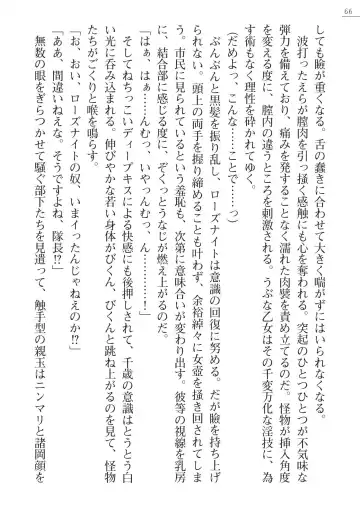 66
しても瞼が重くなる。舌の蠢きに合わせて大きく喘がずにはいられなくなる。
波打ったえらが膣肉を引っ掻く感触にも心を奪われた。突起のひとつひとつが不気味な
弾力を備えており、痛みを発することなく濡れた肉襞を責め立てるのだ。怪物が挿入角度
を変える度に、膣内の違うところを刺激される。うぶな乙女は、その千変万化な淫技に為
す術もなく理性を砕かれてゆく。
(だめよっ、こんな……ことで――っ)
ぶんぶんと黒髪を振り乱し、ローズナイトは意識の回復に努める。だが瞼を持ち上げ
られない。頭上の両手を握り締めることも叶わず、余裕綽々に女壺を掻き回されてしま
う。市民に見られているという羞恥も、次第に意味合いが変わり出す。彼等の視線を乳房
に、結合部に感じる度に、ぞくっとうなじが燃え上がるのだ。
「はぁ、はぁ……んむっ、いやっんむっ、ん…………！」
そしてねちっこいディープキスによる快感にも後押しされて、千歳の意識はとうとう白
い光に呑み込まれる。伸びやかな若い身体がびくん、びくんと跳ね上がるのを見て、怪物
たちがごくりと喉を鳴らす。
「おい、ローズナイトの奴、いまイッたんじゃねえのか⁉」
「ああ、間違いねえな。そうですよね、隊長⁉」
無数の眼をぎらつかせて騒ぐ部下たちを見遣って、触手型の親玉はニンマリと諸岡顔を